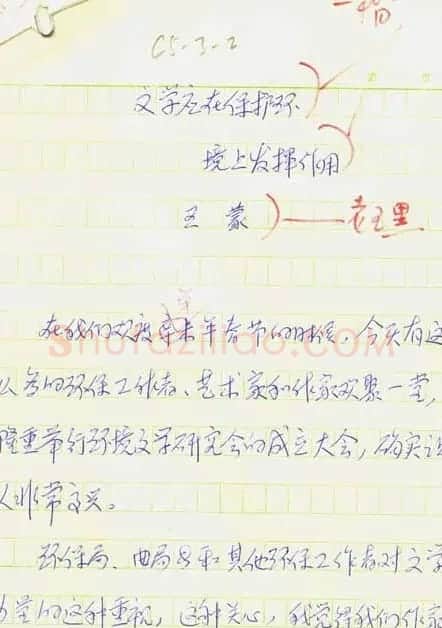 C5-3-2
文学应在保护环
境上发挥作用
王 蒙
老五黑
在我们欢度辛未年春节的时候，今天有这
么多的环保工作者、艺术家和作家欢聚一堂，
隆重举行环境文学研究会的成立大会，确实让
人非常高兴。
环保局、曲局长和其他环保工作者对文学
力量的这种重视，这种关心，我觉得我们作家
shufaziliao.com